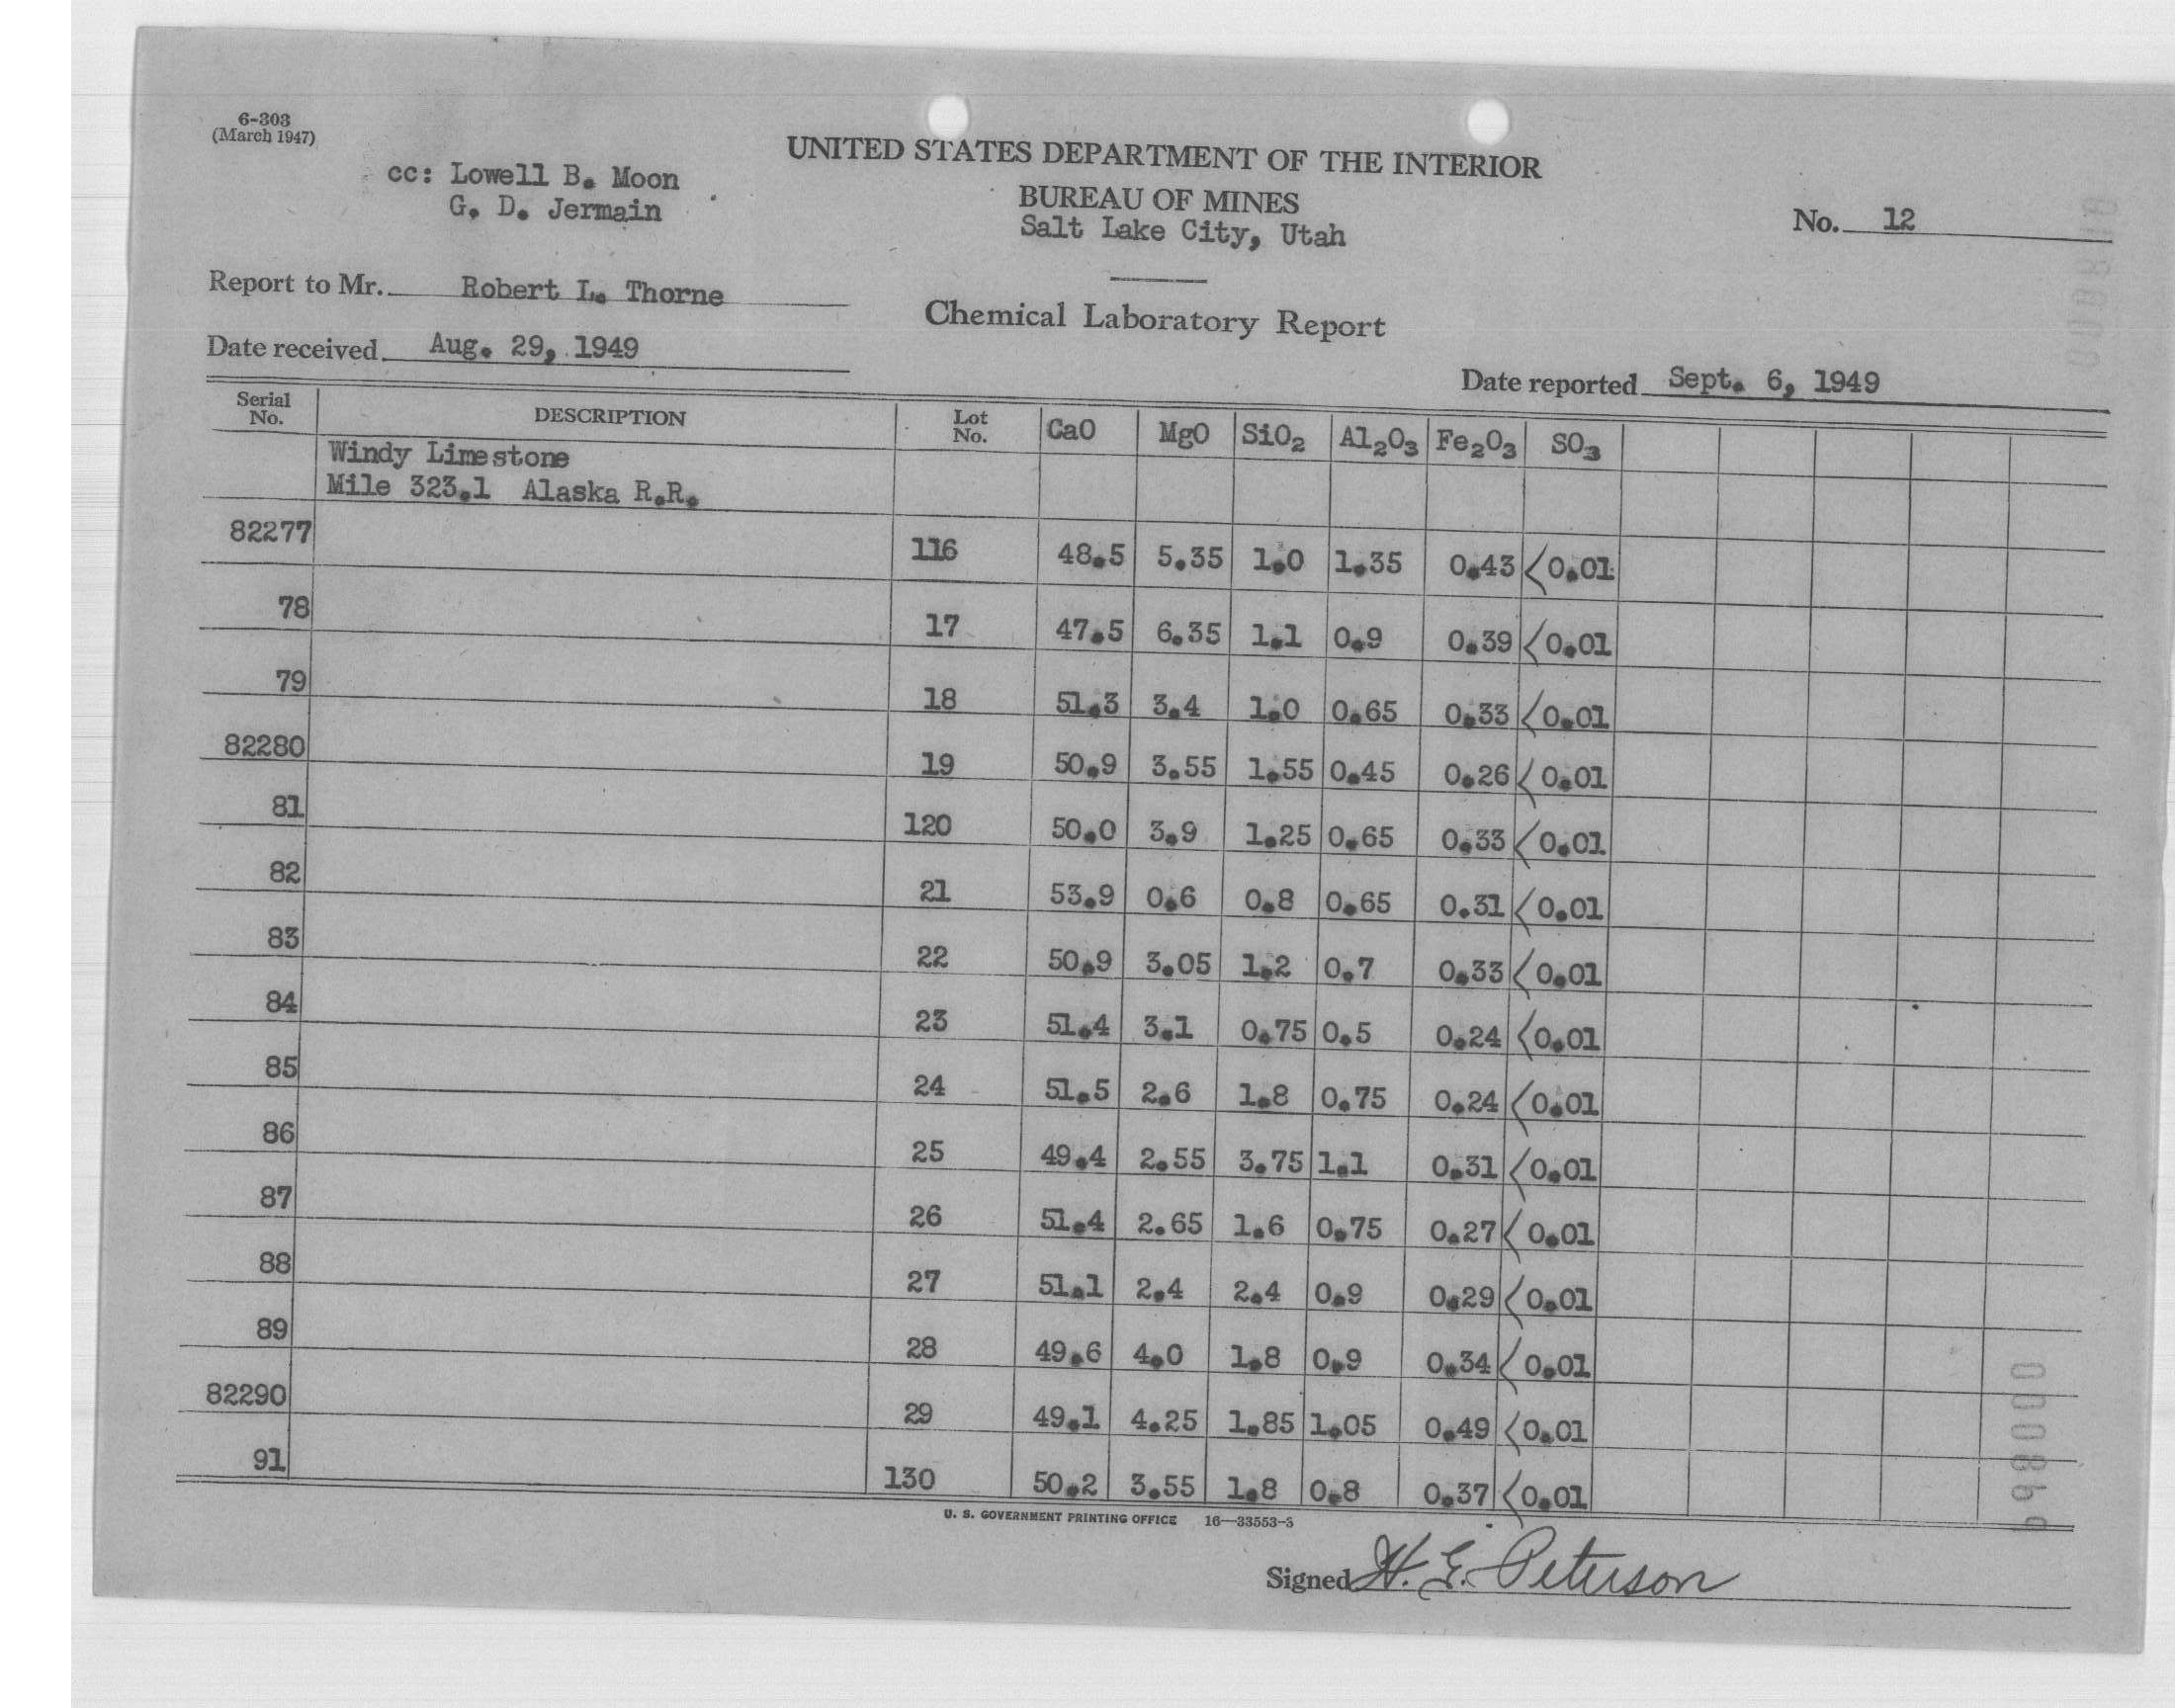 6-303
(March 1947)
cc: Lowell B. Moon
G. D. Jermain
UNITED STATES DEPARTMENT OF THE INTERIOR
BUREAU OF MINES
Salt Lake City, Utah
No. 12
Report to Mr. Robert L. Thorne
Chemical Laboratory Report
Date received Aug. 29, 1949
Date reported Sept. 6, 1949
Serial No. DESCRIPTION Lot No. CaO MgO SiO2 Al2O3 Fe2O3 SO3
Windy Limestone
Mile 323.1 Alaska R.R.
82277 116 48.5 5.35 1.0 1.35 0.43 <0.01
78 17 47.5 6.35 1.1 0.9 0.39 <0.01
79 18 51.3 3.4 1.0 0.65 0.33 <0.01
82280 19 50.9 3.55 1.55 0.45 0.26 <0.01
81 120 50.0 3.9 1.25 0.65 0.33 <0.01
82 21 53.9 0.6 0.8 0.65 0.31 <0.01
83 22 50.9 3.05 1.2 0.7 0.33 <0.01
84 23 51.4 3.1 0.75 0.5 0.24 <0.01
85 24 51.5 2.6 1.8 0.75 0.24 <0.01
86 25 49.4 2.55 3.75 1.1 0.31 <0.01
87 26 51.4 2.65 1.6 0.75 0.27 <0.01
88 27 51.1 2.4 2.4 0.9 0.29 <0.01
89 28 49.6 4.0 1.8 0.9 0.34 <0.01
82290 29 49.1 4.25 1.85 1.05 0.49 <0.01
91 130 50.2 3.55 1.8 0.8 0.37 <0.01
U. S. GOVERNMENT PRINTING OFFICE 16—33553-3
Signed H. E. Peterson